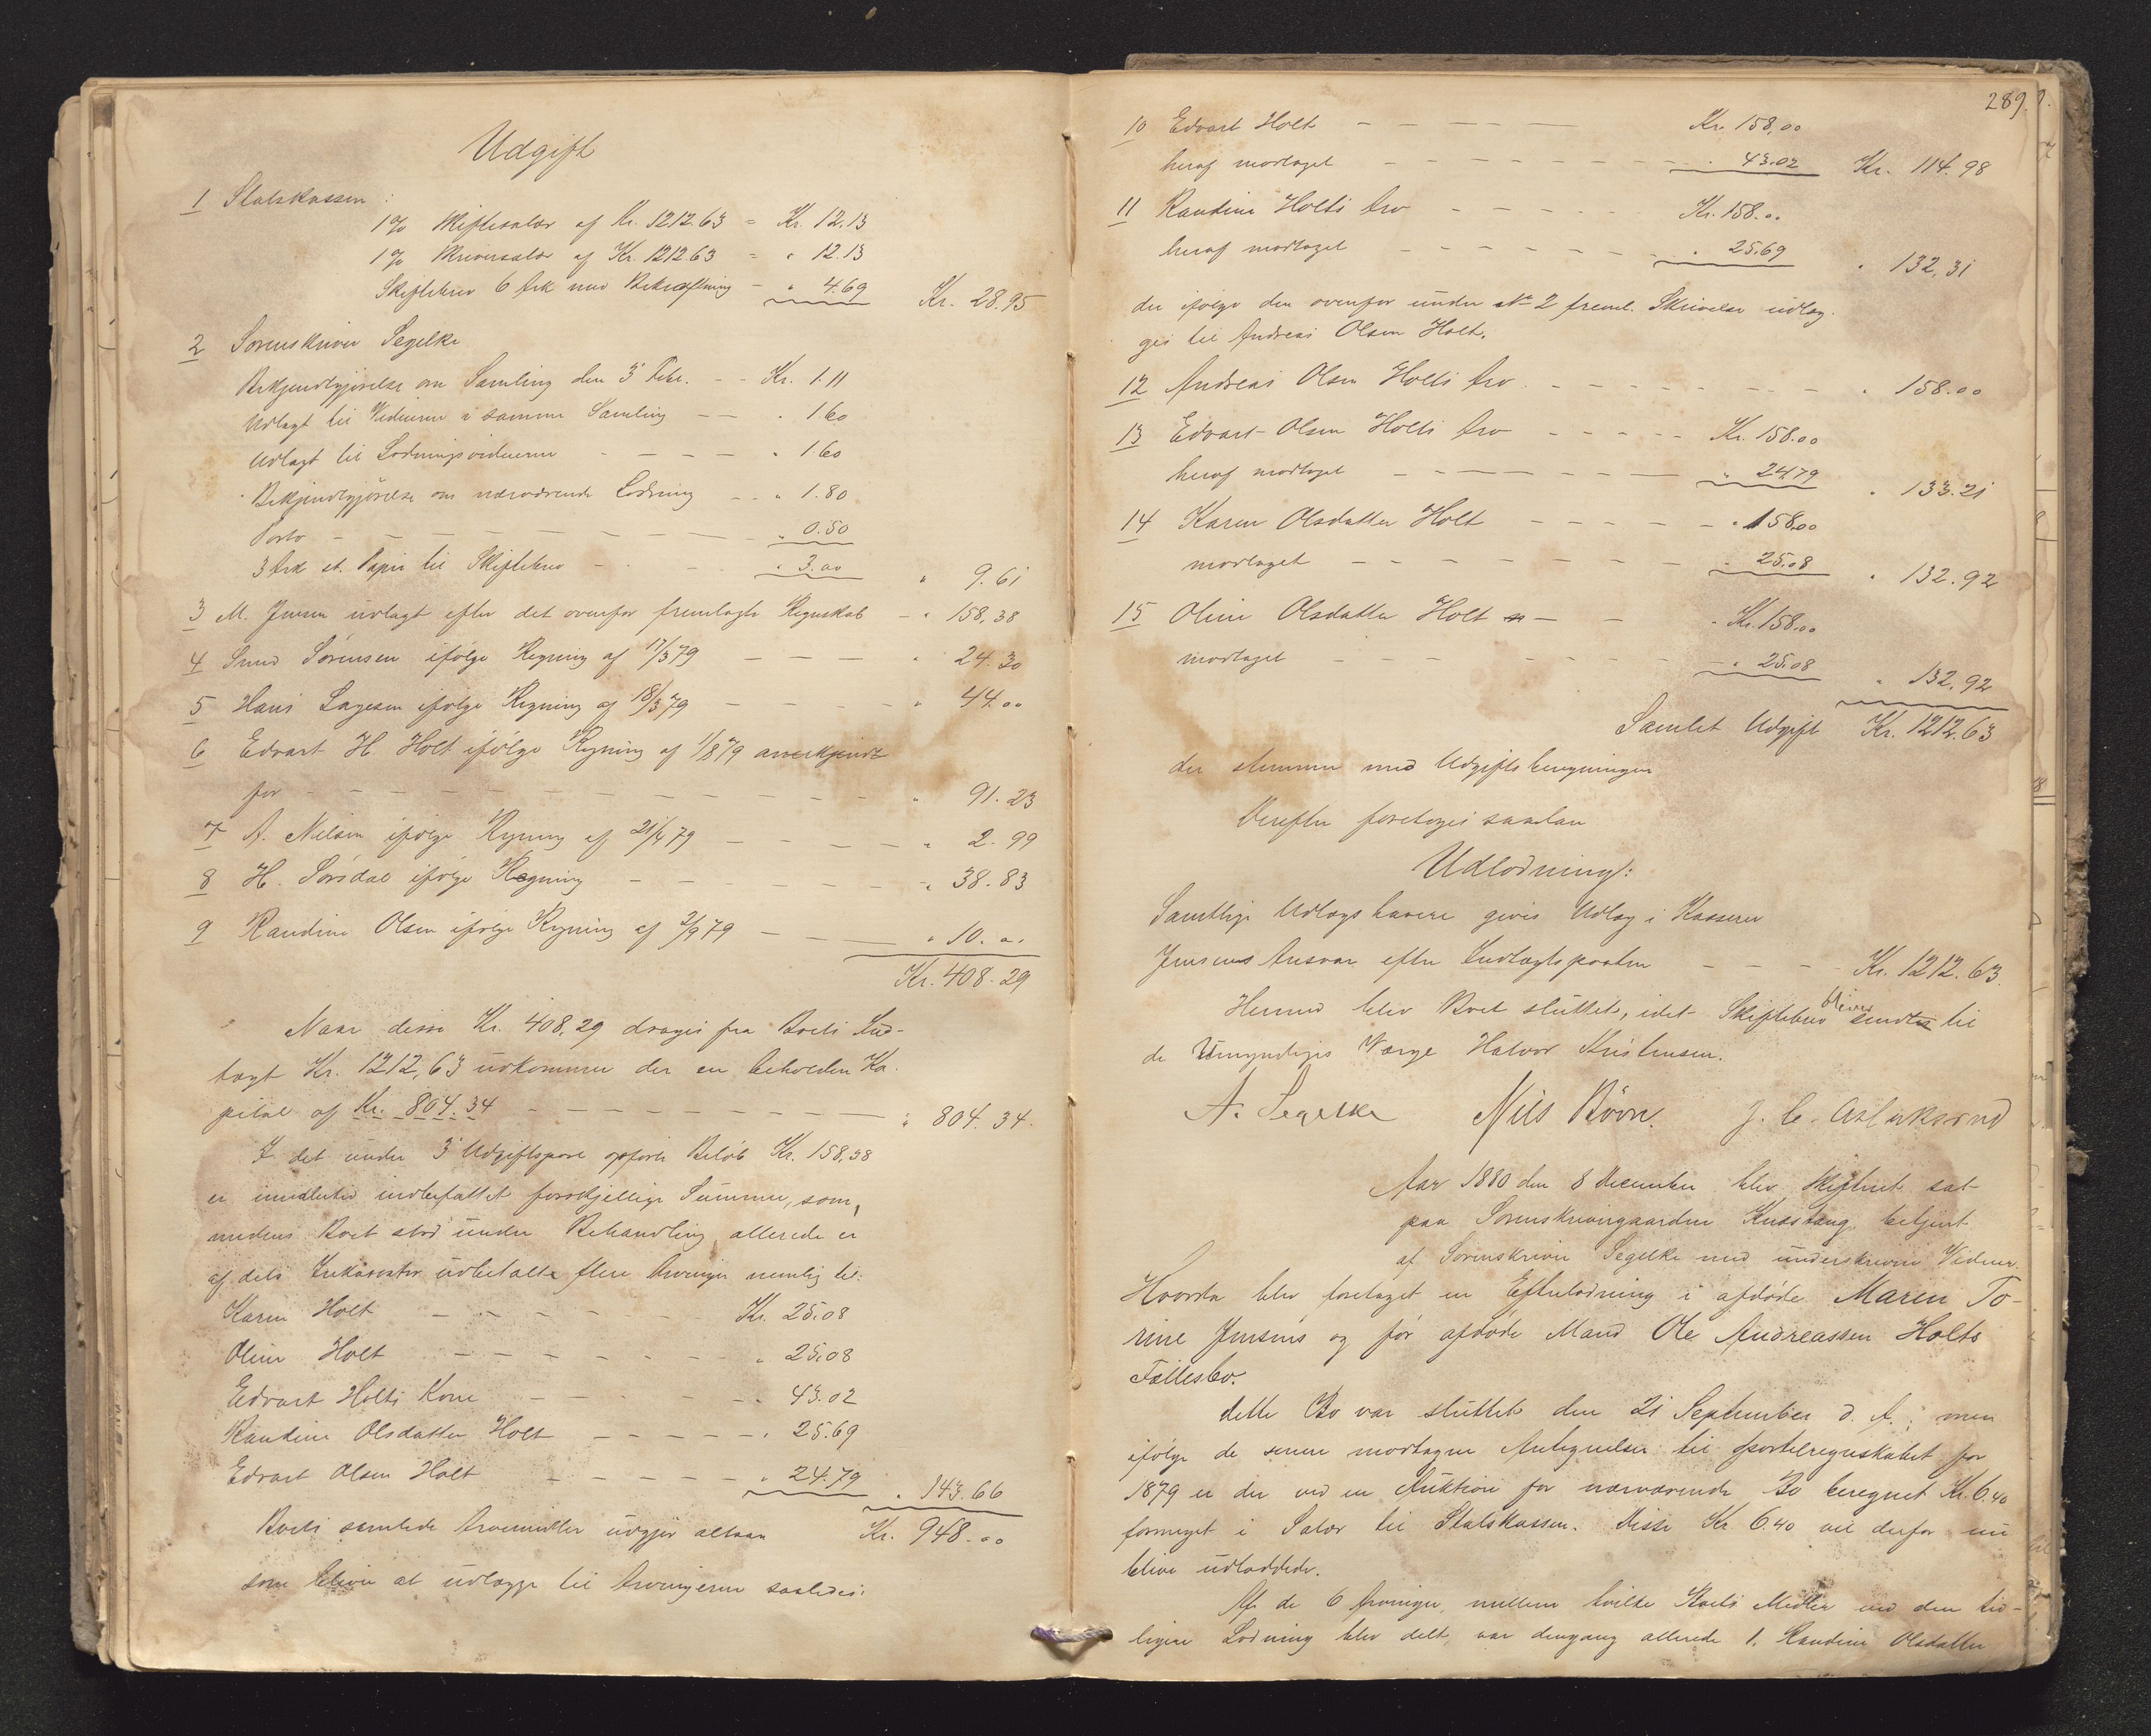 Udgift
1 Statskassen:
1 % Skiftesalær af Kr. 1212.63 = Kr. 12.13
1 % Skriversalær af Kr. 1212.63 = " 12.13
Skiftebrev 6 Ark med Bekræftning - " 4.69 Kr. 28.95
2 Sorenskriver Segelke
Bekjendtgjørelse om Samling den 3 Febr. - - Kr. 1.11
Udlagt til Vidnerne i samme Samling - - " 1.60
Udlagt til Lodningsvidnerne - - - - " 1.60
Bekjendtgjørelse om nærværende Lodning - - " 1.80
Porto - - - - - - - " 0.50
3 Ark st. Papir til Skiftebrev - - - " 3.00 " 9.61
3 M. Jensen udlagt efter det ovenfor fremlagte Regnskab - " 158,38
4 Sund Sørensen ifølge Regning af 17/3 79 - - - " 24.30
5 Hans Lagesen ifølge Regning af 18/3 79 - - - - " 44.00
6 Edvart H. Holt ifølge Regning af 1/8 79 anerkjendt
for - - - - - - - - - - - " 91.23
7 A. Nielsen ifølge Regning af 21/4 79 - - - - - " 2.99
8 H. Sørsdal ifølge Regning - - - - - - - " 38.83
9 Randine Olsen ifølge Regning af 2/9 79 - - - " 10.00
Kr. 408.29
Naar disse Kr. 408,29 drages fra Boets Ind-
tægt Kr. 1212,63 udkommer der en beholden Ka-
pital af Kr. 804.34 - - - - - - - - - " 804.34.
I det under 3 Udgiftspost opførte Beløb Kr. 158,38
er imidlertid indbefattet forskjellige Summer, som,
medens Boet stod under Behandling, allerede er
af dets Inkassator udbetalte flere Arvinger nemlig til:
Karen Holt - - - - - Kr. 25.08
Oline Holt - - - - - - " 25.08
Edvart Holts Kone - - - - - " 43.02
Randine Olsdatter Holt - - - - - " 25.69
Edvart Olsen Holt - - - - - " 24.79 " 143.66
Boets samlede Arvemidler udgjør altsaa Kr. 948.00
som bliver at udlægge til Arvingerne saaledes:
289.
10 Edvart Holt - - - - - Kr. 158,00
heraf modtaget - - - - - - - " 43.02 Kr. 114.98
11 Randine Holts Arv - - - - Kr. 158.00
heraf modtaget - - - - - - " 25.69 " 132,31
der ifølge den ovenfor under No 2 freml. Skrivelse udlæg-
ges til Andreas Olsen Holt.
12 Andreas Olsen Holts Arv - - - - - - - " 158.00
13 Edvart Olsen Holts Arv - - - - - Kr. 158.00
heraf modtaget - - - - - - - " 24.79 " 133.21
14 Karen Olsdatter Holt - - - - - " 158.00
modtaget - - - - - - - " 25.08 " 132.92
15 Oline Olsdatter Holt - - " Kr. 158.00
modtaget - - - - - - - " 25.08 " 132.92
Samlet Udgift Kr. 1212.63
der stemmer med Udgiftsberegningen
Derefter foretoges saadan
Udlodning:
Samtlige Udlægshavere gives Udlæg i Kasserer
Jensens Ansvar efter Indtægtsposten - - - - Kr. 1212.63.
Hermed blev Boet sluttet, idet Skiftebrev bliver sendt til
de Umyndiges Værge Halvor Kristensen.
A. Segelke Nils Böön. J. C. Aslaksrud
Aar 1880 den 8 December blev Skifteret sat
paa Sorenskrivergaarden Knasstang betjent
af Sorenskriver Segelke med underskrevne Vidner.
Hvorda blev foretaget en Efterlodning i afdøde Maren To-
rine Jensens og før afdøde Mand Ole Andreassen Holts
Fællesbo.
dette Bo var sluttet den 21 September d. A.; men
ifølge de senere modtagne Antegnelser til Sportelregnskabet for
1879 er der ved en Auktion for nærværende Bo beregnet Kr. 6.40
formeget i Salær til Statskassen. Disse Kr 6.40 vil derfor nu
blive udloddede.
Af de 6 Arvinger, mellem hvilke Boets Midler ved den tid-
ligere Lodning blev delt, var dengang allerede 1. Randine Olsdatter